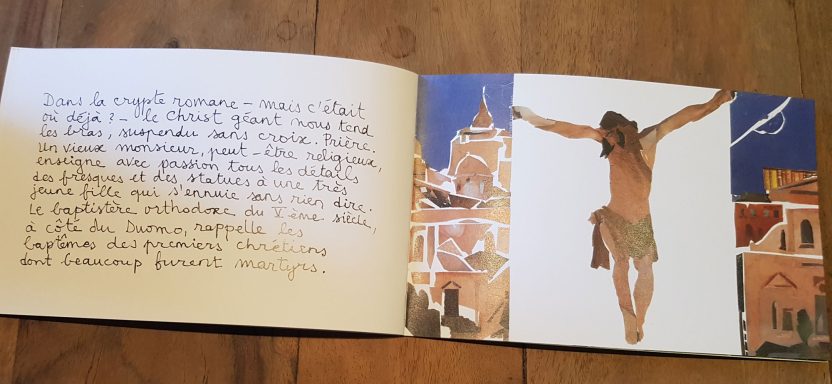 Dans la crypte romane – mais c'était
où déjà ? – le Christ géant nous tend
les bras, suspendu sans croix. Prière.
Un vieux monsieur, peut-être religieux,
enseigne avec passion tous les détails
des fresques et des statues à une très
jeune fille qui s'ennuie sans rien dire.
Le baptistère orthodoxe du Vème siècle,
à côté du Duomo, rappelle les
baptêmes des premiers chrétiens
dont beaucoup furent martyrs.